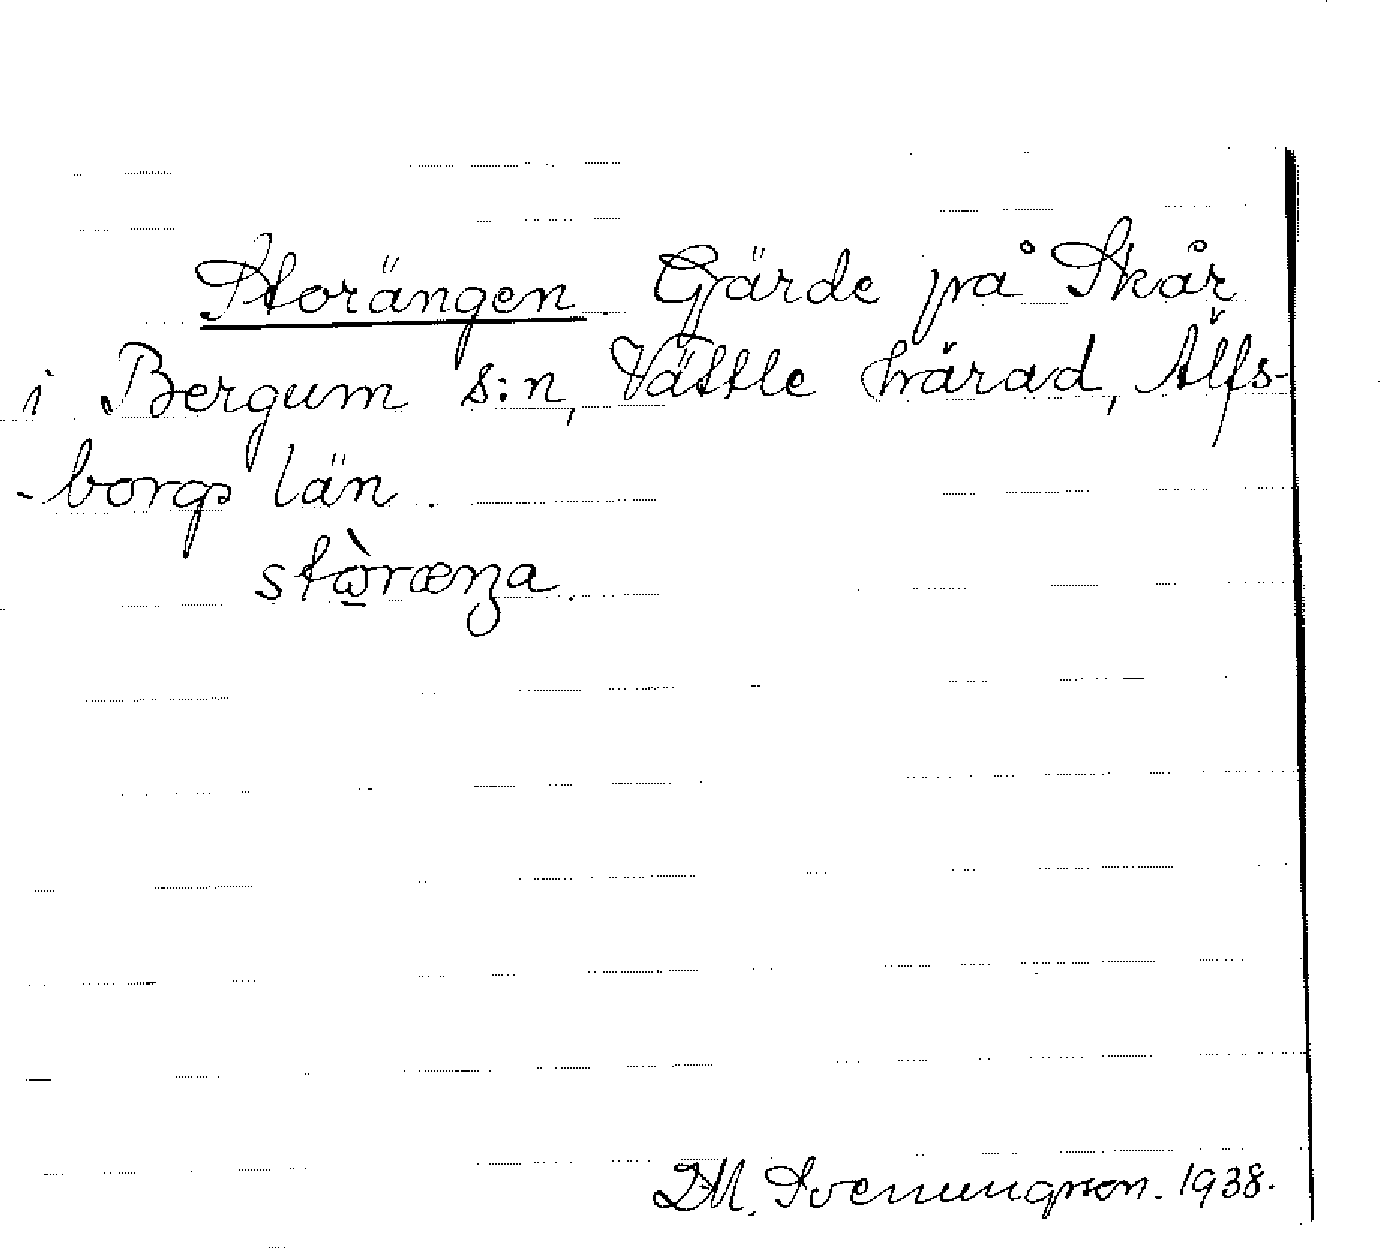 Storängen. Gärde på Skår
i Bergum s:n, Vättle härad, Älfs-
-borgs län.
stòræŋa.
D.M. Svenungsson. 1938.